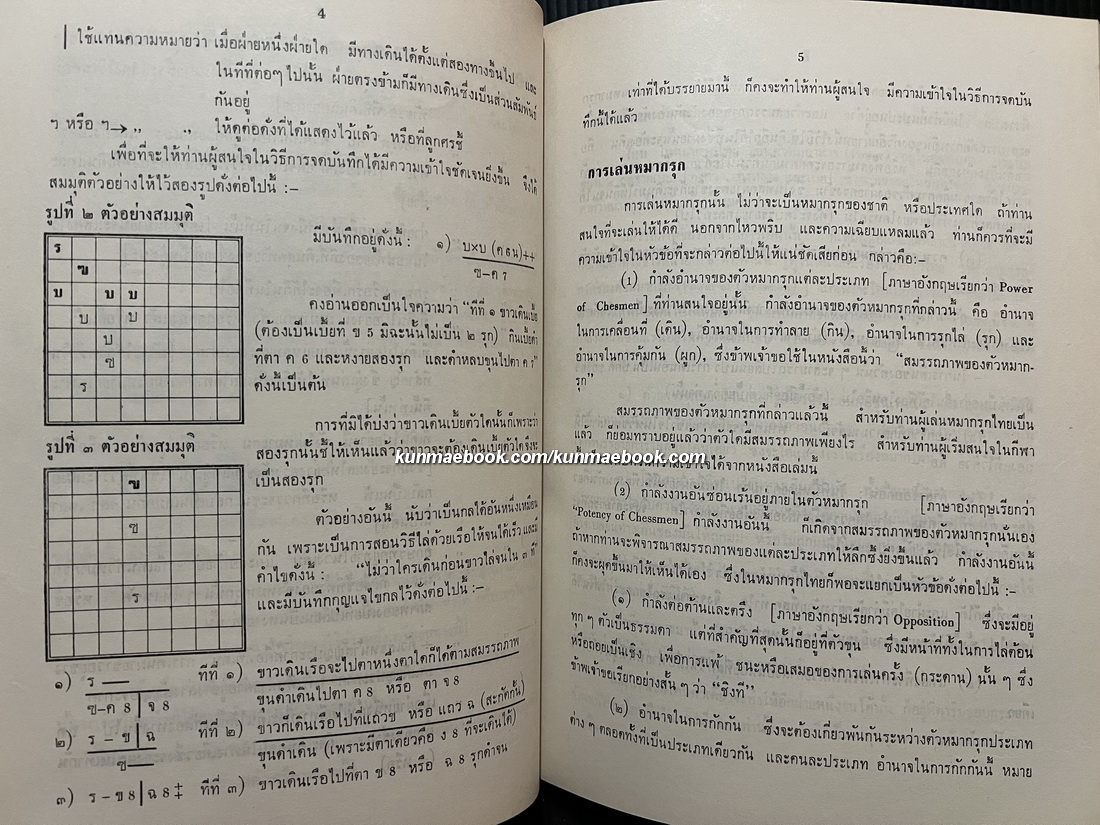 4
ใช้แทนความหมายว่า เมื่อฝ่ายหนึ่งฝ่ายใด มีทางเดินได้ตั้งแต่สองทางขึ้นไป และ
ในทีที่ต่อๆ ไปนั้น ฝ่ายตรงข้ามก็มีทางเดินซึ่งเป็นส่วนสัมพันธ์
กันอยู่
ๆ หรือ ๆ→ ,, ,, ให้ดูต่อดั่งที่ได้แสดงไว้แล้ว หรือที่ลูกศรชี้
เพื่อที่จะให้ท่านผู้สนใจในวิธีการจดบันทึกได้มีความเข้าใจชัดเจนยิ่งขึ้น จึงได้
สมมุติตัวอย่างให้ไว้สองรูปดั่งต่อไปนี้ :–
รูปที่ ๒ ตัวอย่างสมมุติ
ร
ฃ
บ บ บ
บ บ
บ
ซ
ร
มีบันทึกอยู่ดั่งนี้ : ๑) บxบ (ค ๖น)++
ซ–ค ๗
คงอ่านออกเป็นใจความว่า “ทีที่ ๑ ขาวเดินเบี้ย
(ต้องเป็นเบี้ยที่ ข 5 มิฉะนั้นไม่เป็น ๒ รุก) กินเบี้ยดำ
ที่ตา ค 6 และหงายสองรุก และดำหลบขุนไปตา ค ๗”
ดั่งนี้เป็นต้น
การที่มิได้บ่งว่าขาวเดินเบี้ยตัวใดนั้นก็เพราะว่า
สองรุกนั้นชี้ให้เห็นแล้วว่าขาวจะต้องเดินเบี้ยตัวใดจึงจะ
เป็นสองรุก
รูปที่ ๓ ตัวอย่างสมมุติ
ฃ
ซ
ร
ตัวอย่างอันนี้ นับว่าเป็นกลได้อันหนึ่งเหมือน
กัน เพราะเป็นการสอนวิธีไล่ด้วยเรือให้จนได้เร็ว และมี
คำไขดั่งนี้ : “ไม่ว่าใครเดินก่อนขาวไล่จนใน ๓ ที”
และมีบันทึกกุญแจไขกลไว้ดั่งต่อไปนี้ :–
๑) ร — ทีที่ ๑) ขาวเดินเรือจะไปตาหนึ่งตาใดก็ได้ตามสมรรถภาพ
ซ–ค ๘ | จ ๘ ขุนดำเดินไปตา ค ๘ หรือ ตา จ ๘
๒) ร – ข | ฉ ทีที่ ๒) ขาวก็เดินเรือไปที่แถวข หรือ แถว ฉ (สะกัดกั้น)
ซ— ขุนดำเดิน (เพราะมีตาเดียวคือ ง ๘ ที่จะเดินได้)
๓) ร – ข ๘ | ฉ ๘ ‡ ทีที่ ๓) ขาวเดินเรือไปที่ตา ข ๘ หรือ ฉ ๘ รุกดำจน
5
เท่าที่ได้บรรยายมานี้ ก็คงจะทำให้ท่านผู้สนใจ มีความเข้าใจในวิธีการจดบัน
ทึกนี้ได้แล้ว
การเล่นหมากรุก
การเล่นหมากรุกนั้น ไม่ว่าจะเป็นหมากรุกของชาติ หรือประเทศใด ถ้าท่าน
สนใจที่จะเล่นให้ได้ดี นอกจากไหวพริบ และความเฉียบแหลมแล้ว ท่านก็ควรที่จะมี
ความเข้าใจในหัวข้อที่จะกล่าวต่อไปนี้ให้แน่ชัดเสียก่อน กล่าวคือ:–
(1) กำลังอำนาจของตัวหมากรุกแต่ละประเภท [ภาษาอังกฤษเรียกว่า Power
of Chesmen] ที่ท่านสนใจอยู่นั้น กำลังอำนาจของตัวหมากรุกที่กล่าวนี้ คือ อำนาจ
ในการเคลื่อนที่ (เดิน), อำนาจในการทำลาย (กิน), อำนาจในการรุกไล่ (รุก) และ
อำนาจในการคุ้มกัน (ผูก), ซึ่งข้าพเจ้าขอใช้ในหนังสือนี้ว่า “สมรรถภาพของตัวหมาก-
รุก”
สมรรถภาพของตัวหมากรุกที่กล่าวแล้วนี้ สำหรับท่านผู้เล่นหมากรุกไทยเป็น
แล้ว ก็ย่อมทราบอยู่แล้วว่าตัวใดมีสมรรถภาพเพียงไร สำหรับท่านผู้เริ่มสนใจในกีฬา
เข้าใจได้จากหนังสือเล่มนี้
kunmaebook.com/kunmaebook.com
(2) กำลังงานอันซ่อนเร้นอยู่ภายในตัวหมากรุก [ภาษาอังกฤษเรียกว่า
“Potency of Chessmen] กำลังงานอันนี้ ก็เกิดจากสมรรถภาพของตัวหมากรุกนั่นเอง
ถ้าหากท่านจะพิจารณาสมรรถภาพของแต่ละประเภทให้ลึกซึ้งยิ่งขึ้นแล้ว กำลังงานอันนี้
ก็คงจะผุดขึ้นมาให้เห็นได้เอง ซึ่งในหมากรุกไทยก็พอจะแยกเป็นหัวข้อดั่งต่อไปนี้ :–
(๑) กำลังต่อต้านและตรึง [ภาษาอังกฤษเรียกว่า Opposition] ซึ่งจะมีอยู่
ทุก ๆ ตัวเป็นธรรมดา แต่ที่สำคัญที่สุดนั้นก็อยู่ที่ตัวขุน ซึ่งมีหน้าที่ทั้งในการไล่ต้อน
หรือถอยเป็นเชิง เพื่อการแพ้ ชนะหรือเสมอของการเล่นครั้ง (กระดาน) นั้น ๆ ซึ่ง
ข้าพเจ้าขอเรียกอย่างสั้น ๆ ว่า “ชิงที”
(๒) อำนาจในการกักกัน ซึ่งจะต้องเกี่ยวพันกันระหว่างตัวหมากรุกประเภท
ต่าง ๆ ตลอดทั้งที่เป็นประเภทเดียวกัน และคนละประเภท อำนาจในการกักกันนี้ หมาย